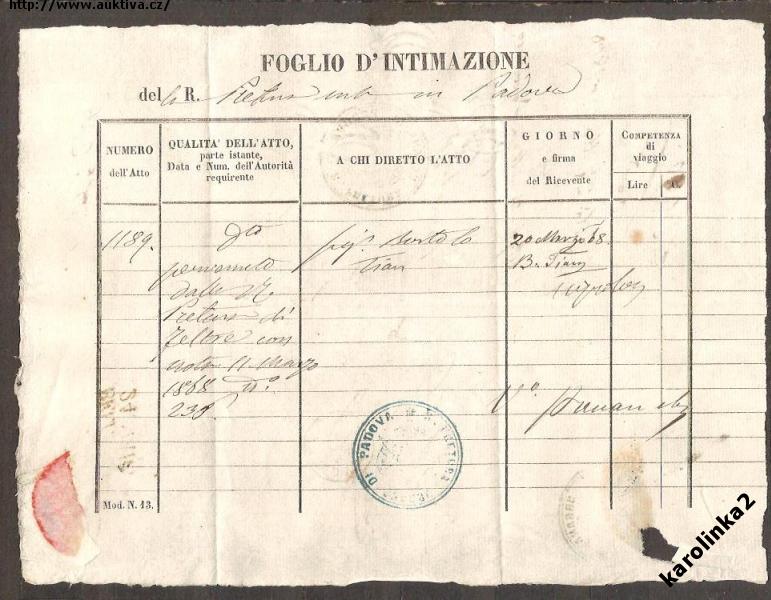 http://www.auktiva.cz/
FOGLIO D'INTIMAZIONE
del R. in Padova
NUMERO
dell'Atto
QUALITA' DELL'ATTO,
parte istante,
Data e Num. dell'Autorità
requirente
A CHI DIRETTO L'ATTO
GIORNO
e firma
del Ricevente
Competenza
di
viaggio
Lire C.
1189.
pervenuto
dalla R.
Pretura di
Feltre con
nota 11 Marzo
1868 N.o
238.
sig.r Bortolo
Tian
20 Marzo 68.
B. Tian
V.o
R. PRETURA
DI PADOVA
Mod. N. 13.
karolinka2